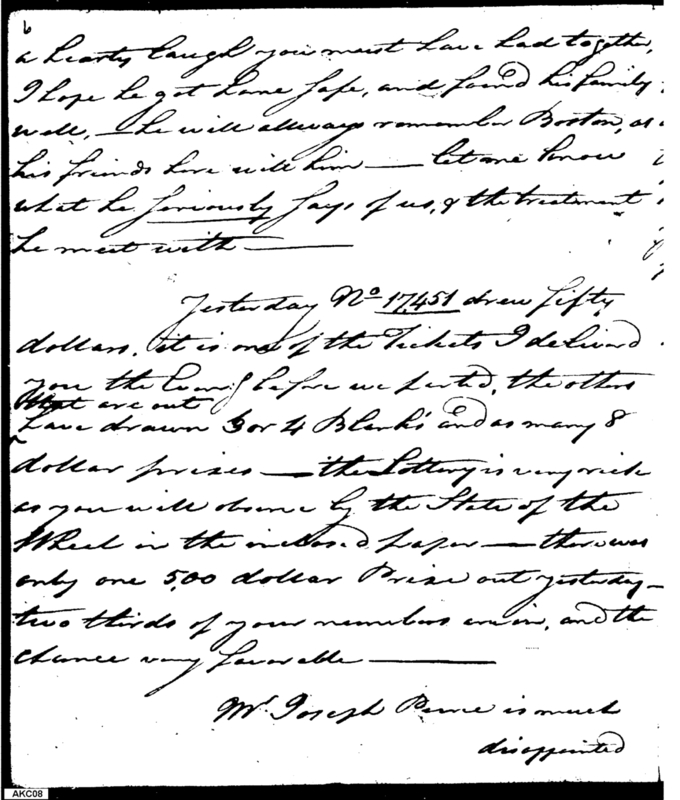 6
a hearty laugh you must have had together,
I hope he got home safe, and found his family
well, — he will allways remember Boston, as
his friends here will him — let me know
what he seriously says of us, & the treatment
he meet with —
Yesterday No 17,451 drew fifty
dollars, it is one of the Tickets I deliverd
you the Eveng before we parted, the others
that are out
have drawn 3 or 4 Blanks and as many 8
dollar prizes — the Lottery is very rich
as you will observe by the State of the
Wheel in the inclosed paper — there was
only one 500 dollar Prize out yesterday —
two thirds of your numbers are in, and the
chance very favorable —
Mr. Joseph Peirce is much
disappointed
AKC08